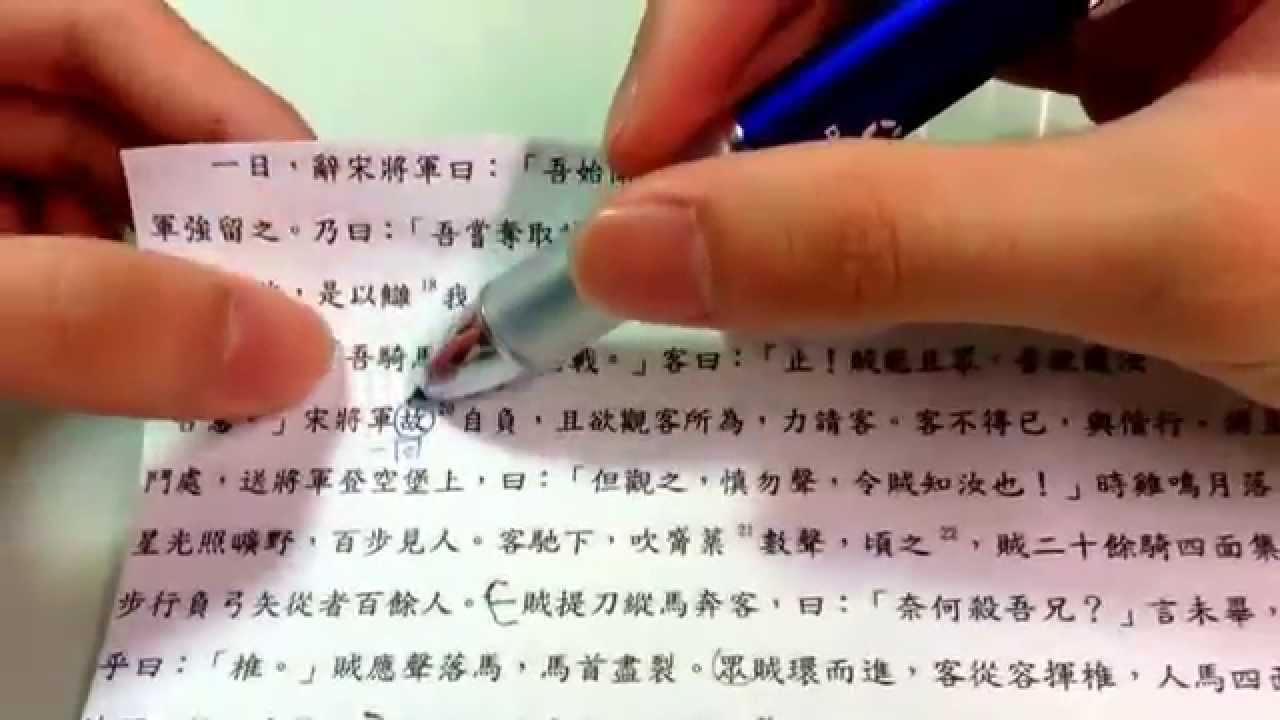 一日，辭宋將軍曰：「吾始
軍強留之。乃曰：「吾嘗奪取
，是以讎18我
吾騎馬 戰。」客曰：「止！賊能且眾，吾欲護汝
」宋將軍故20自負，且欲觀客所為，力請客。客不得已，與偕行。將
回
鬥處，送將軍登空堡上，曰：「但觀之，慎勿聲，令賊知汝也！」時雞鳴月落
星光照曠野，百步見人。客馳下，吹觱篥21數聲，頃之22，賊二十餘騎四面集
步行負弓矢從者百餘人。一賊提刀縱馬奔客，曰：「奈何殺吾兄？」言未畢，
乎曰：「椎。」賊應聲落馬，馬首盡裂。眾賊環而進，客從容揮椎，人馬四面